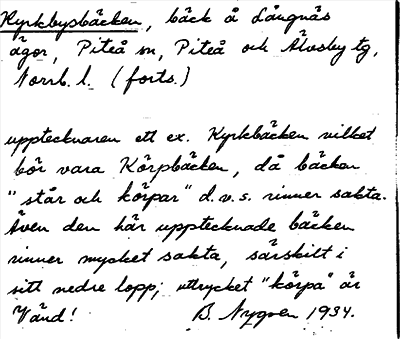 Kyrkbysbäcken, bäck å Långnäs
ägor, Piteå sn, Piteå och Älvsby tg,
Norrb. l. (forts.)
upptecknaren ett ex. Kyrkbäcken vilket
bör vara Körpbäcken, då bäcken
"står och körpar" d.v.s. rinner sakta.
Även den här upptecknade bäcken
rinner mycket sakta, särskilt i
sitt nedre lopp; uttrycket "körpa" är
Vänd! B. Nygren 1934.